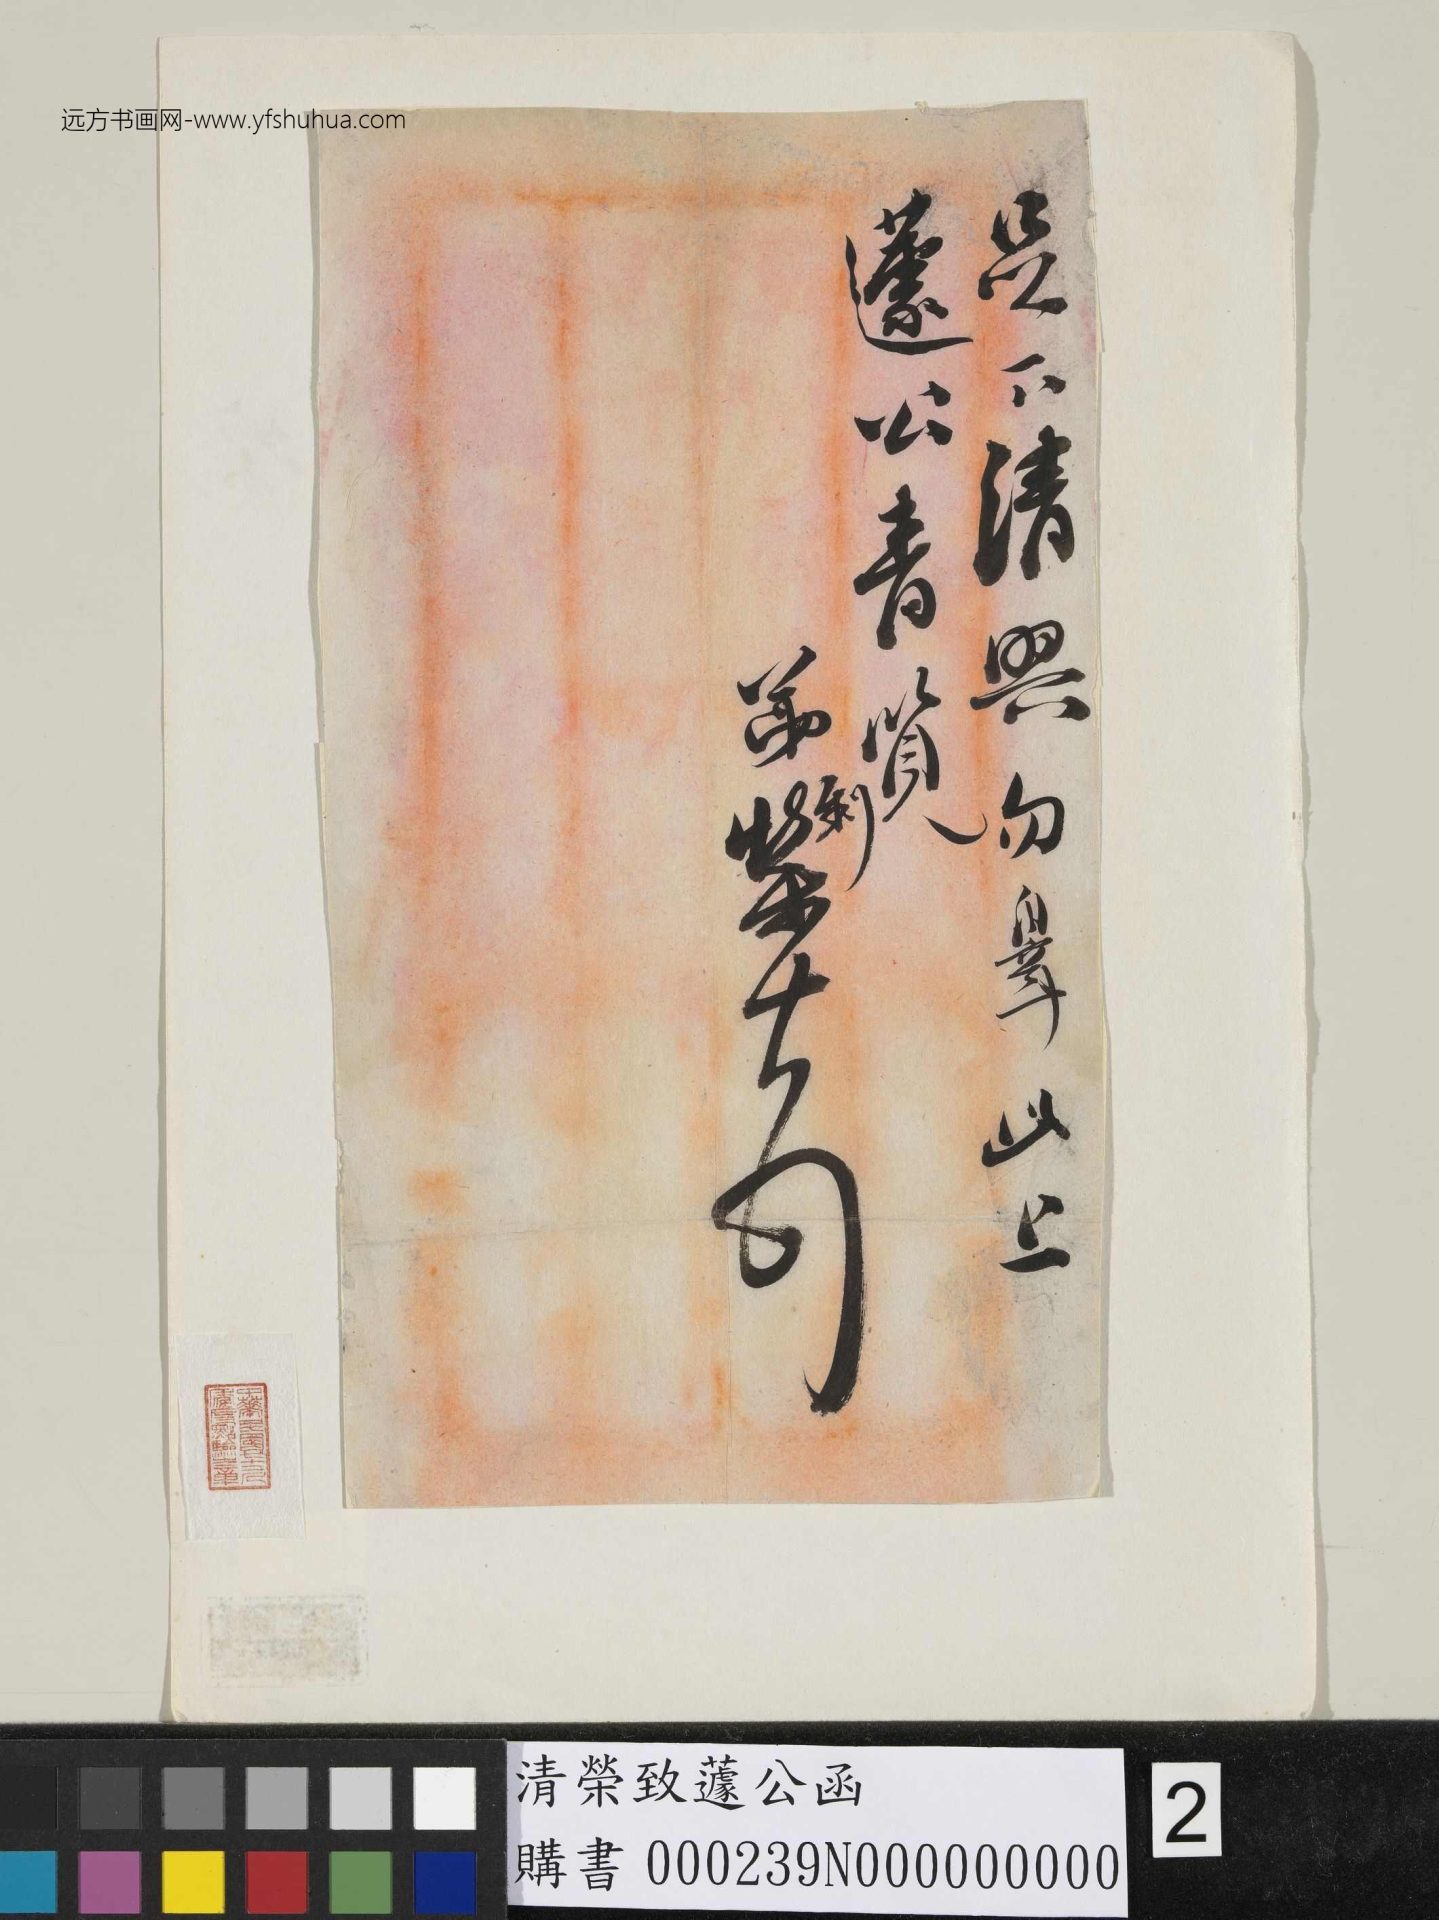 远方书画网-www.yfshuhua.com
足下清興勿辜此上
蘧公青覽
弟制榮頓首
清榮致蘧公函
購書 000239N000000000
2